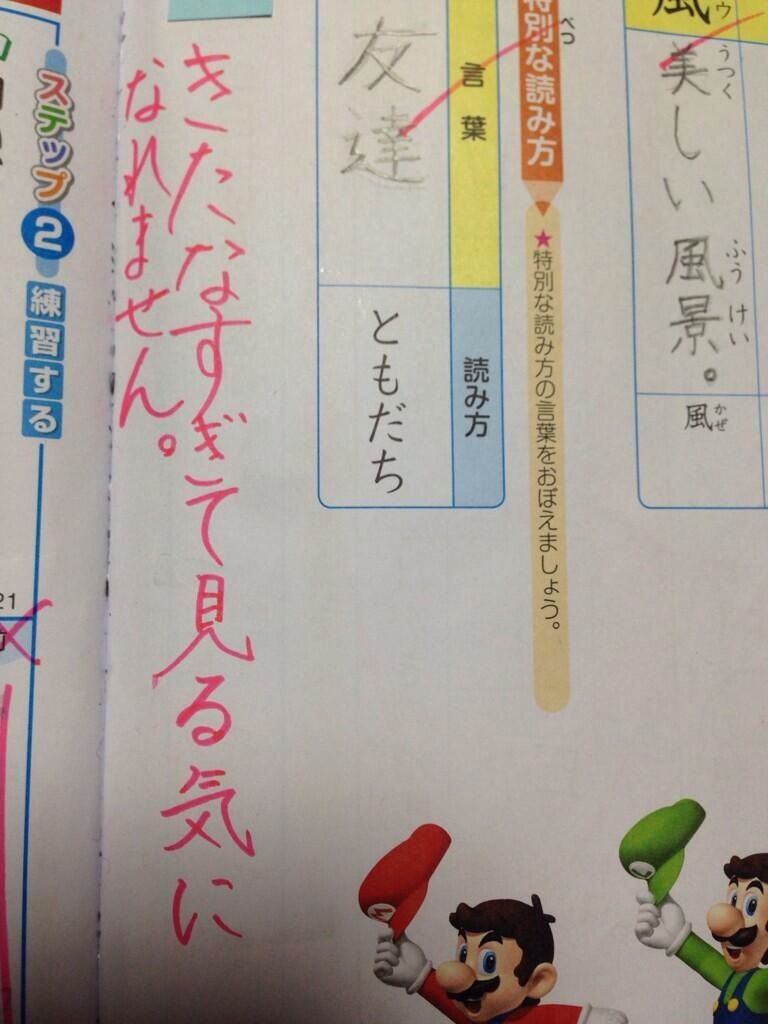 風
ウ
美しい風景。
うつく
ふうけい
風
かぜ
特別な読み方
べつ
★特別な読み方の言葉をおぼえましょう。
言葉
読み方
友達
ともだち
きたなすぎて見る気に
なれません。
ステップ2
練習する
21